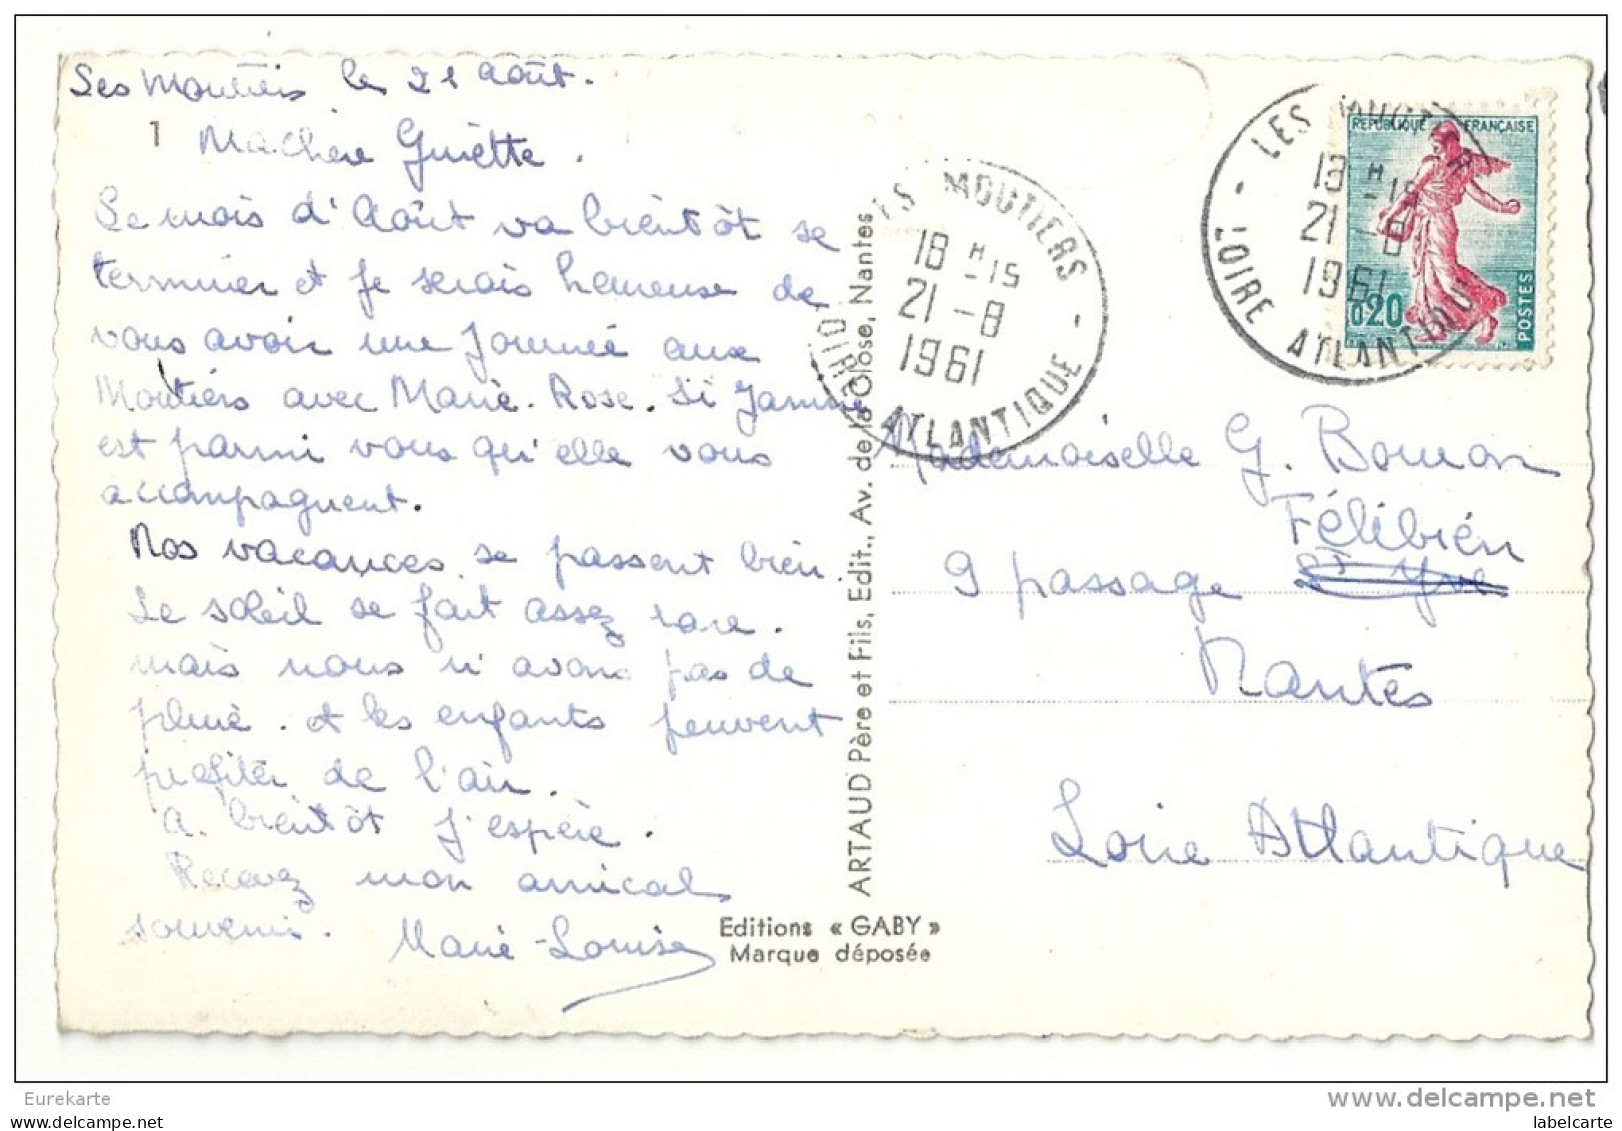 Les Moutiers le 21 Août.
1
Ma Chère Guiette.
Le mois d'Août va bientôt se
terminer et je serais heureuse de
vous avoir une journée aux
Moutiers avec Marie-Rose. Si Janine
est parmi vous qu'elle vous
accompagnent.
Nos vacances se passent bien
Le soleil se fait assez rare.
mais nous n'avons pas de
pluie. et les enfants peuvent
profiter de l'air.
A bientôt j'espère.
Recevez mon amical
souvenir. Marie-Louise
Editions « GABY »
Marque déposée
ARTAUD Père et Fils, Edit., Av. de la Close, Nantes
LES MOUTIERS
18 H -15
21 -8
1961
LOIRE ATLANTIQUE
LES MOUTIERS
18 H -15
21 -8
1961
LOIRE ATLANTIQUE
REPUBLIQUE FRANÇAISE
0,20
POSTES
Mademoiselle G. Bouron
Félibién
9 passage St Yve
Nantes
Loire Atlantique
Eurekarte
www.delcampe.net
labelcarte